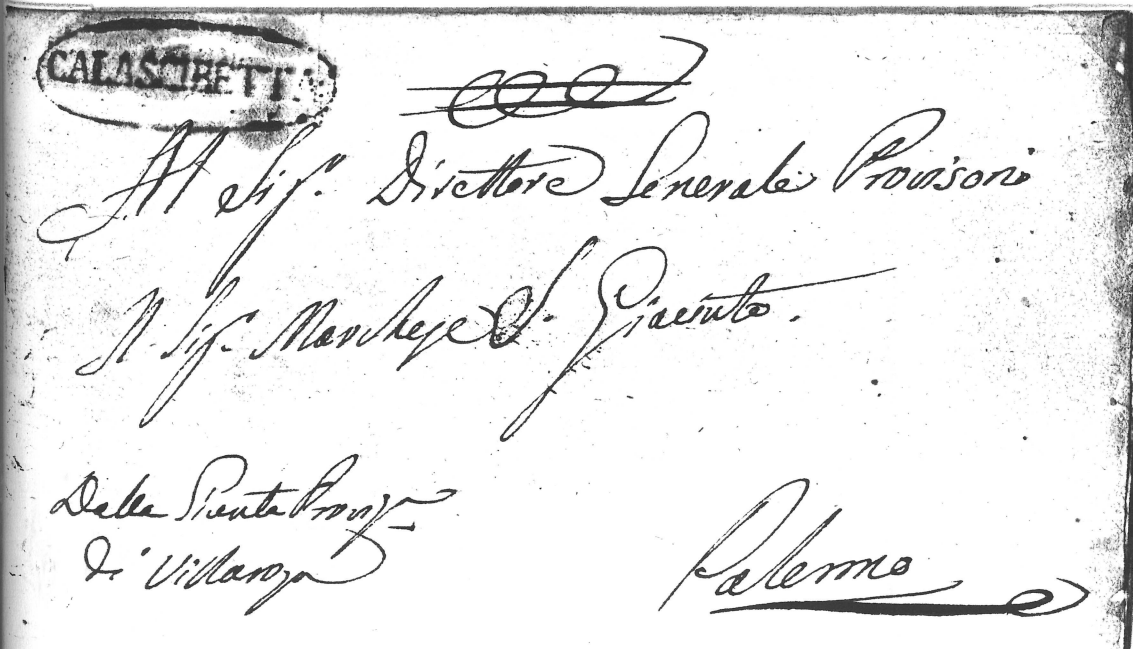 CALASCIBETTA
Al Sig.r Direttore Generale Provisorio
Il Sig.r Marchese S. Giacinto.
Dalla Giunta Provis.a
di Villarosa
Palermo